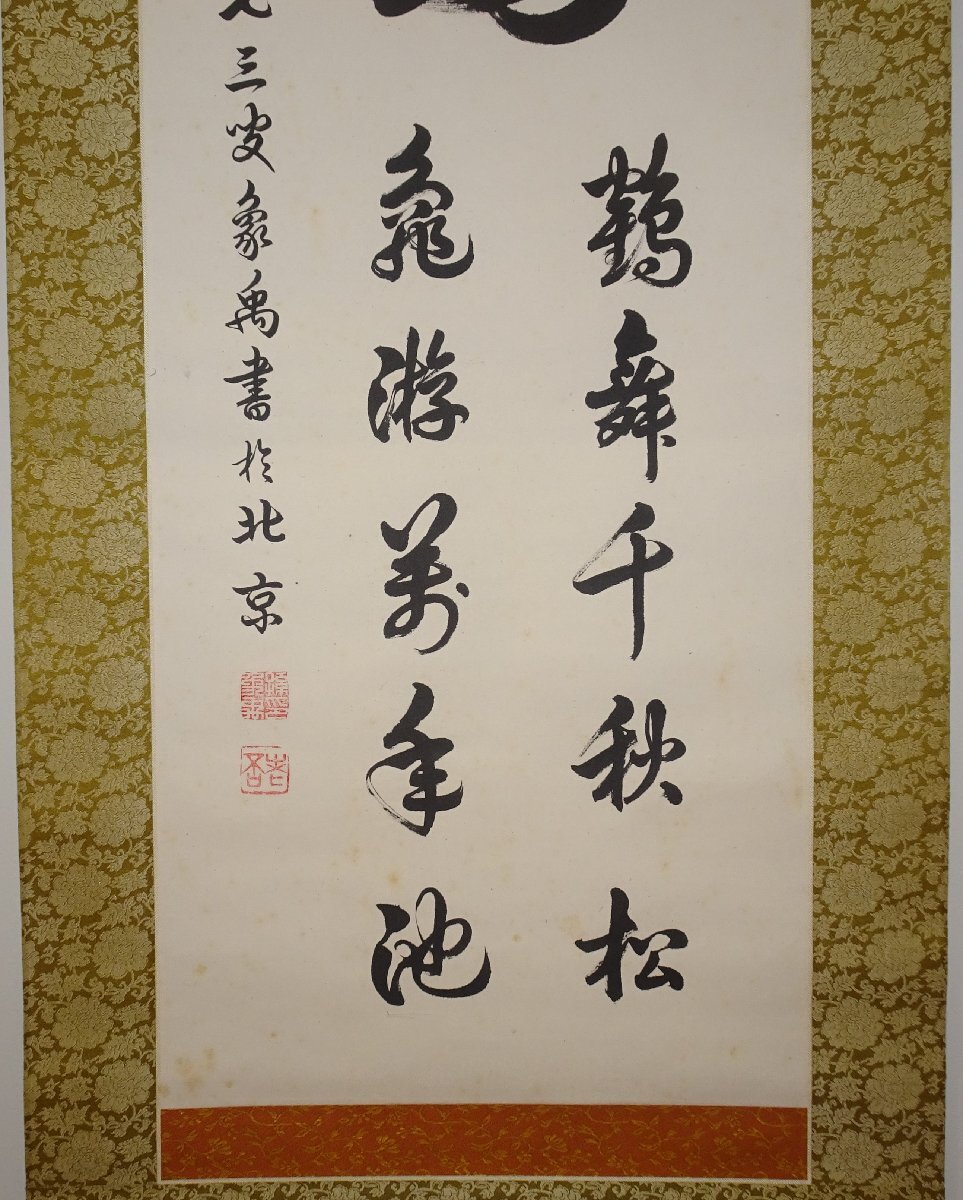 鶴舞千秋松
龜游萬年池
三叟象禹書於北京